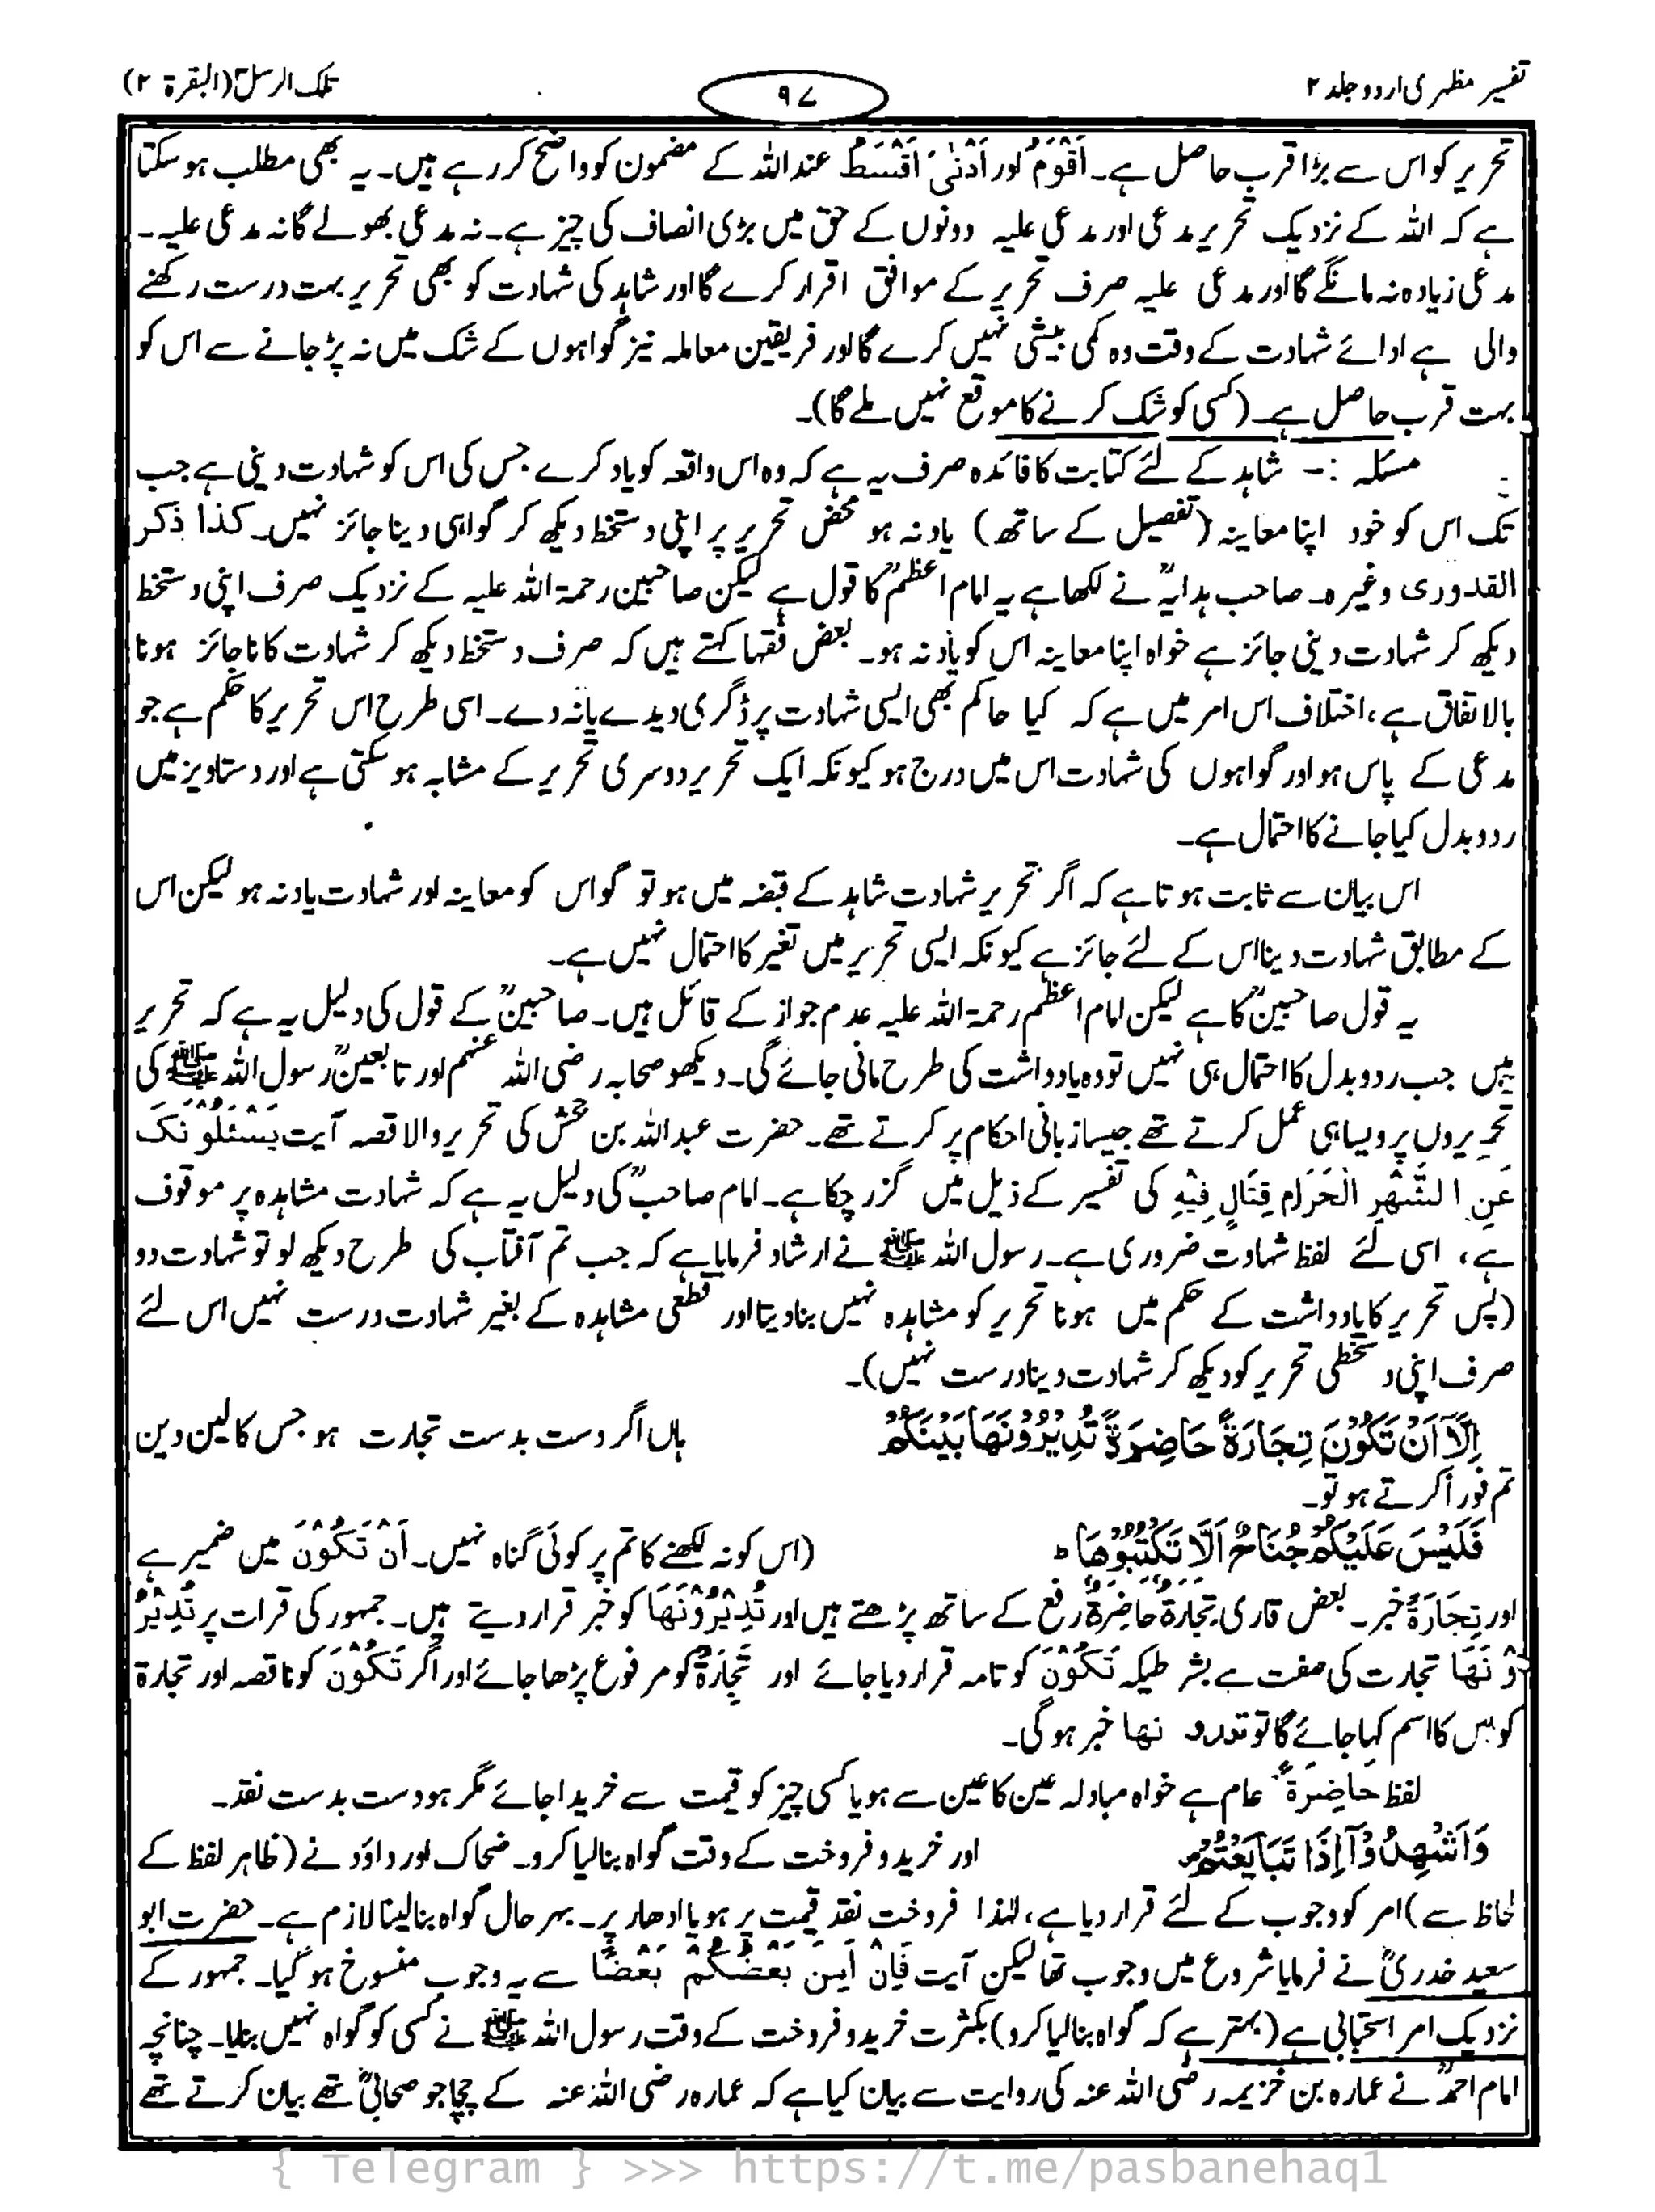 تفسیر مظہری اردو جلد ۲
۹۷
تلک الرسل ۳ (البقرۃ ۲)
تحریر کو اس سے بڑا قرب حاصل ہے۔ اَقْوَمُ اور اَدْنٰی، اَقْسَطُ عنداللہ کے مضمون کو واضح کر رہے ہیں۔ یہ بھی مطلب ہو سکتا
ہے کہ اللہ کے نزدیک تحریر مدعی اور مدعی علیہ دونوں کے حق میں بڑی انصاف کی چیز ہے۔ نہ مدعی بھولے گا نہ مدعی علیہ۔
مدعی زیادہ نہ مانگے گا اور مدعی علیہ صرف تحریر کے موافق اقرار کرے گا اور شاہد کی شہادت کو بھی تحریر بہت درست رکھنے
والی ہے ادائے شہادت کے وقت وہ کمی بیشی نہیں کرے گا اور فریقین معاملہ نیز گواہوں کے شک میں نہ پڑ جانے سے اس کو
بہت قرب حاصل ہے۔ (کسی کو شک کرنے کا موقع نہیں ملے گا)۔
مسئلہ :- شاہد کے لئے کتابت کا فائدہ صرف یہ ہے کہ وہ اس واقعہ کو یاد کرے جس کی اس کو شہادت دینی ہے جب
تک اس کو خود اپنا معاینہ (تفصیل کے ساتھ) یاد نہ ہو محض تحریر پر اپنی دستخط دیکھ کر گواہی دینا جائز نہیں۔ کذا ذکر
القدوری وغیرہ۔ صاحب ہدایہؒ نے لکھا ہے یہ امام اعظمؒ کا قول ہے لیکن صاحبین رحمۃ اللہ علیہ کے نزدیک صرف اپنی دستخط
دیکھ کر شہادت دینی جائز ہے خواہ اپنا معاینہ اس کو یاد نہ ہو۔ بعض فقہا کہتے ہیں کہ صرف دستخط دیکھ کر شہادت کا ناجائز ہونا
بالاتفاق ہے، اختلاف اس امر میں ہے کہ کیا حاکم بھی ایسی شہادت پر ڈگری دیدے یا نہ دے۔ اسی طرح اس تحریر کا حکم ہے جو
مدعی کے پاس ہو اور گواہوں کی شہادت اس میں درج ہو کیونکہ ایک تحریر دوسری تحریر کے مشابہ ہو سکتی ہے اور دستاویز میں
ردوبدل کیا جانے کا احتمال ہے۔
اس بیان سے ثابت ہوتا ہے کہ اگر تحریر شہادت شاہد کے قبضہ میں ہو تو گو اس کو معاینہ اور شہادت یاد نہ ہو لیکن اس
کے مطابق شہادت دینا اس کے لئے جائز ہے کیونکہ ایسی تحریر میں تغیر کا احتمال نہیں ہے۔
یہ قول صاحبینؒ کا ہے لیکن امام اعظم رحمۃ اللہ علیہ عدم جواز کے قائل ہیں۔ صاحبینؒ کے قول کی دلیل یہ ہے کہ تحریر
میں جب ردوبدل کا احتمال ہی نہیں تو وہ یادداشت کی طرح مانی جائے گی۔ دیکھو صحابہ رضی اللہ عنہم اور تابعینؒ رسول اللہ ﷺ کی
تحریروں پر ویسا ہی عمل کرتے تھے جیسا زبانی احکام پر کرتے تھے۔ حضرت عبداللہ بن جحش کی تحریر والا قصہ آیت یَسْئَلُوْنَکَ
عَنِ الشَّهْرِ الْحَرَامِ قِتَالٍ فِیْهِ کی تفسیر کے ذیل میں گزر چکا ہے۔ امام صاحبؒ کی دلیل یہ ہے کہ شہادت مشاہدہ پر موقوف
ہے، اسی لئے لفظ شہادت ضروری ہے۔ رسول اللہ ﷺ نے ارشاد فرمایا ہے کہ جب تم آفتاب کی طرح دیکھ لو تو شہادت دو
(پس تحریر کا یادداشت کے حکم میں ہونا تحریر کو مشاہدہ نہیں بنا دیتا اور قطعی مشاہدہ کے بغیر شہادت درست نہیں اس لئے
صرف اپنی دستخطی تحریر کو دیکھ کر شہادت دینا درست نہیں)۔
اِلَّاۤ اَنْ تَكُوْنَ تِجَارَةً حَاضِرَةً تُدِيْرُوْنَهَا بَيْنَكُمْ ہاں اگر دست بدست تجارت ہو جس کا لین دین
تم فوراً کرتے ہو تو۔
فَلَيْسَ عَلَيْكُمْ جُنَاحٌ اَلَّا تَكْتُبُوْهَا ؕ (اس کو نہ لکھنے کا تم پر کوئی گناہ نہیں۔ اَنْ تَکُوْنَ میں ضمیر ہے
اور تِجَارَۃً خبر۔ بعض قاری تِجَارَۃٌ حَاضِرَۃٌ رفع کے ساتھ پڑھتے ہیں اور تُدِیْرُوْنَهَا کو خبر قرار دیتے ہیں۔ جمہور کی قرات پر تُدِیْرُ
وْنَهَا تجارت کی صفت ہے بشرطیکہ تَکُوْنَ کو تامہ قرار دیا جائے اور تِجَارَۃٌ کو مرفوع پڑھا جائے اور اگر تَکُوْنَ کو ناقصہ اور تجارۃ
کو اس کا اسم کہا جائے گا تو تدیرو نها خبر ہوگی۔
لفظ حَاضِرَۃً عام ہے خواہ مبادلہ عین کا عین سے ہو یا کسی چیز کو قیمت سے خریدا جائے مگر ہو دست بدست نقد۔
وَاَشْهِدُوْۤا اِذَا تَبَايَعْتُمْ اور خرید و فروخت کے وقت گواہ بنا لیا کرو۔ ضحاک اور داؤد نے (ظاہر لفظ کے
لحاظ سے) امر کو وجوب کے لئے قرار دیا ہے، لہٰذا فروخت نقد قیمت پر ہو یا ادھار پر۔ بہرحال گواہ بنا لینا لازم ہے۔ حضرت ابو
سعید خدریؓ نے فرمایا شروع میں وجوب تھا لیکن آیت فَاِنْ اَمِنَ بَعْضُکُمْ بَعْضًا سے یہ وجوب منسوخ ہو گیا۔ جمہور کے
نزدیک امر استحبابی ہے (بہتر ہے کہ گواہ بنا لیا کرو) بکثرت خرید و فروخت کے وقت رسول اللہ ﷺ نے کسی کو گواہ نہیں بنایا۔ چنانچہ
امام احمدؒ نے عمارہ بن خزیمہ رضی اللہ عنہ کی روایت سے بیان کیا ہے کہ عمارہ رضی اللہ عنہ کے چچا جو صحابیؓ تھے بیان کرتے تھے
{ Telegram } >>> https://t.me/pasbanehaq1